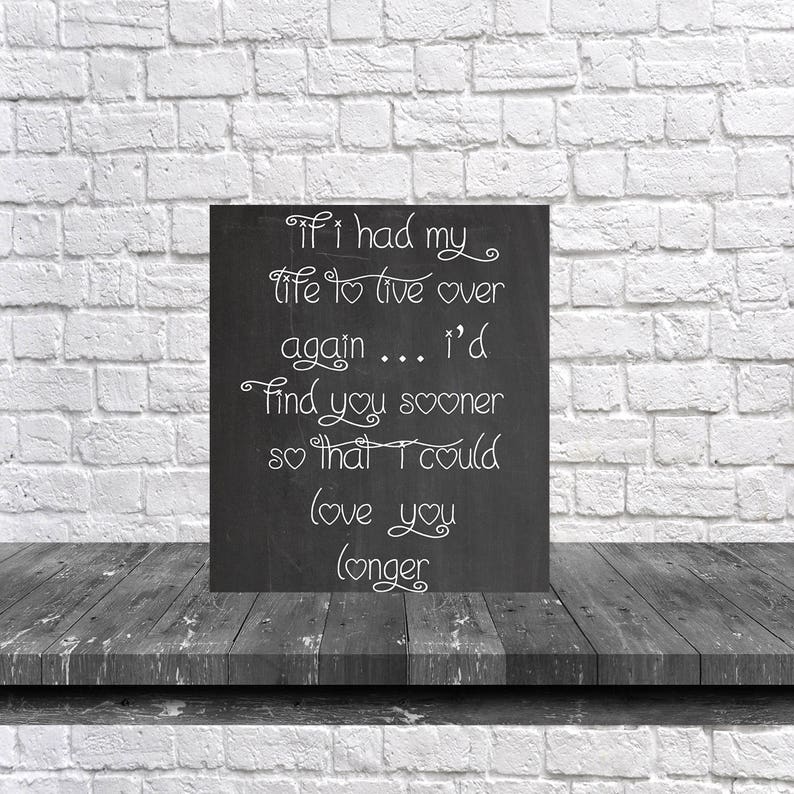 if i had my
life to live over
again ... i'd
find you sooner
so that i could
love you
longer